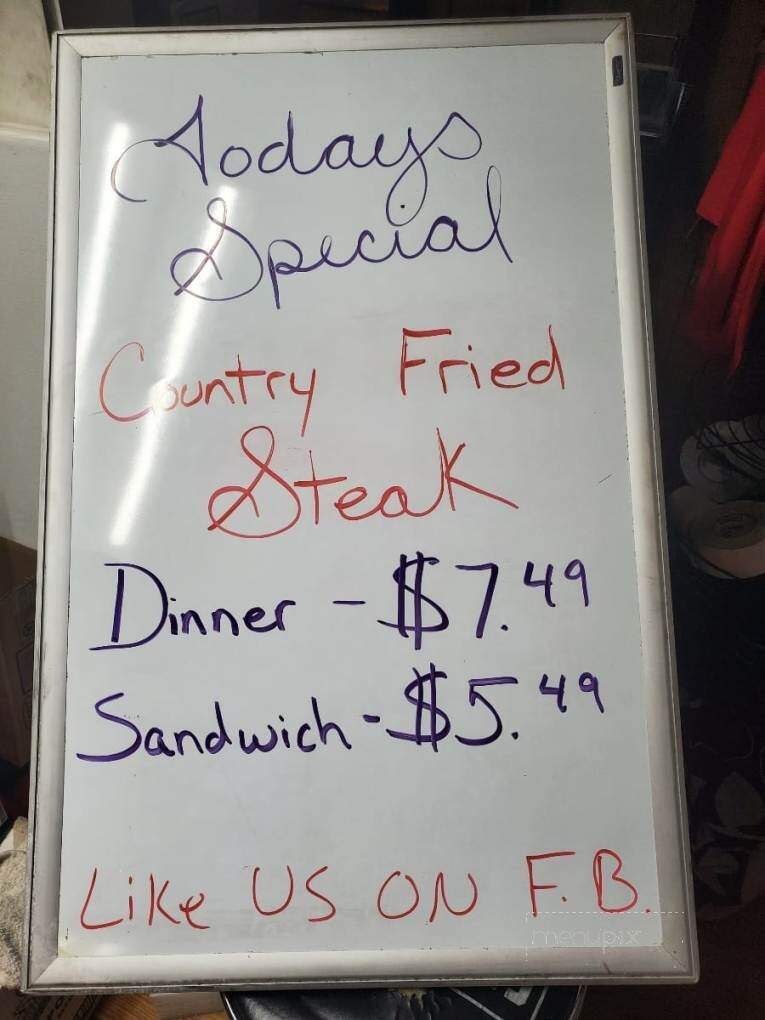 Todays
Special
Country Fried
Steak
Dinner - $7.49
Sandwich - $5.49
Like US ON F.B.
menupix